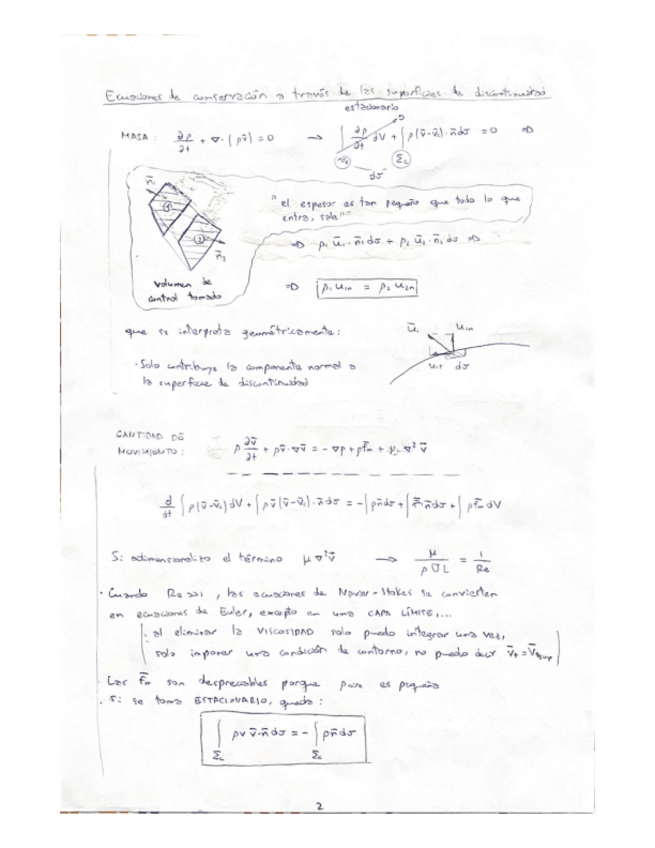 Ecuaciones de conservación a través de las superficies de discontinuidad
estacionario
MASA: ∂ρ/∂t + ∇·(ρv̄) = 0 → ∫ ∂ρ/∂t dV + ∫ ρ(v̄-v̄c)·n̄dσ = 0 ⇒
0
Σc
dσ
n̄1
1
2
n̄2
volumen de
control tomado
"el espesor es tan pequeño que todo lo que
entra, sale"
⇒ ρ1 ū1·n̄1dσ + ρ2 ū2·n̄2dσ ⇒
⇒ ρ1 u1n = ρ2 u2n
que se interpreta geométricamente:
· Solo contribuye la componente normal a
la superficie de discontinuidad
ū1 u1n
u1τ dσ
CANTIDAD DE
MOVIMIENTO: ρ ∂v̄/∂t + ρv̄·∇v̄ = -∇p + ρf̄m + μ∇²v̄
d/dt ∫ ρ(v̄-v̄c)dV + ∫ ρv̄(v̄-v̄c)·n̄dσ = -∫ pn̄dσ + ∫ n̄dσ + ∫ ρf̄m dV
Si adimensionalizo el término μ∇²v̄ → μ/ρUL = 1/Re
· Cuando Re>>1, las ecuaciones de Navier-Stokes se convierten
en ecuaciones de Euler, excepto en una CAPA LÍMITE,...
- al eliminar la VISCOSIDAD solo puedo integrar una vez,
solo imponer una condición de contorno, no puedo decir
· Las f̄m son despreciables porque es pequeño
· Si se toma ESTACIONARIO, queda:
∫Σc ρv v̄·n̄dσ = -∫Σc pn̄dσ
2